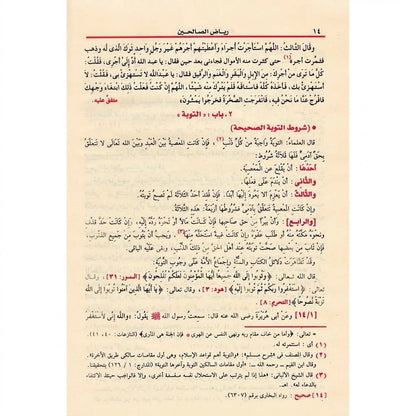 ١٤ رياض الصالحين
وقَالَ الثَّالِثُ: اللَّهُمَّ اسْتَأْجَرْتُ أُجَرَاءَ وَأَعْطَيْتُهُمْ أَجْرَهُمْ غَيْرَ رَجُلٍ وَاحِدٍ تَرَكَ الَّذِي لَهُ وَذَهَبَ
فَثَمَّرْتُ أَجْرَهُ(١) حَتَّى كَثُرَتْ مِنْهُ الأَمْوَالُ فَجَاءَنِي بَعْدَ حِينٍ فَقَالَ: يَا عَبْدَ اللهِ أَدِّ إِلَيَّ أَجْرِي، فَقُلْتُ:
كُلُّ مَا تَرَى مِنْ أَجْرِكَ: مِنَ الإِبِلِ وَالْبَقَرِ وَالْغَنَمِ وَالرَّقِيقِ فَقَالَ: يَا عَبْدَاللهِ لا تَسْتَهْزِئْ بِي، فَقُلْتُ:
لا أَسْتَهْزِئُ بِكَ، فَأَخَذَهُ كُلَّهُ فَاسْتَاقَهُ فَلَمْ يَتْرُكْ مِنْهُ شَيْئًا، اللَّهُمَّ إِنْ كُنْتُ فَعَلْتُ ذَلِكَ ابْتِغَاءَ وَجْهِكَ
فَافْرُجْ عَنَّا مَا نَحْنُ فِيهِ، فَانْفَرَجَتِ الصَّخْرَةُ فَخَرَجُوا يَمْشُونَ» متفق عليه.
٢ـ باب: «التوبة»
● (شروط التوبة الصحيحة)
قال العلماءُ: التوبةُ واجبةٌ من كُلِّ ذنبٍ(٢)، فإن كانت المعصيةُ بين العبدِ وبين الله تعالى لا تتعلَّقُ
بحقِّ آدميٍّ فلها ثلاثةُ شُروط:
أحدُها: أن يُقلعَ عن المعصيةِ.
والثاني: أن يندَمَ على فعلها.
والثالث: أن يعزمَ ألا يعودَ إليها أبدًا. فإن فُقِدَ أحدُ الثلاثةِ لم تصحَّ توبتُهُ.
وإن كانت المعصيةُ تتعلَّقُ بآدميٍّ فشروطُها أربعةٌ: هذه الثلاثةُ.
[والرابع]: وأن يبرأَ من حقِّ صاحبها فإن كانت مالًا أو نحوه ردَّه إليه، وإن كانت حدَّ قذفٍ
ونحوه مكَّنه منه أو طلبَ عفوَه وإن كانت غيبةً استحلَّه منها(٣)، ويجبُ أن يتوبَ من جميعِ الذنوبِ،
فإن تابَ من بعضها صحَّت توبتُه عند أهلِ الحقِّ من ذلك الذنبِ، وبقي عليه الباقي.
وقد تظاهرت دلائلُ الكتابِ والسُّنَّةِ وإجماعُ الأمةِ على وجوبِ التوبةِ:
قال الله تعالى: ﴿وَتُوبُوا إِلَى اللَّهِ جَمِيعًا أَيُّهَا الْمُؤْمِنُونَ لَعَلَّكُمْ تُفْلِحُونَ﴾ [النور: ٣١]، وقال
تعالى: ﴿اسْتَغْفِرُوا رَبَّكُمْ ثُمَّ تُوبُوا إِلَيْهِ﴾ [هود: ٣]، وقال تعالى: ﴿يَا أَيُّهَا الَّذِينَ آمَنُوا تُوبُوا إِلَى اللَّهِ
تَوْبَةً نَصُوحًا﴾ [التحريم: ٨].
[١٤/١] وعن أبي هُريرةَ رضي الله عنه قال: سمعتُ رسولَ الله ﷺ يقولُ: «والله إنِّي لأستغفرُ
* تعالى: ﴿وأما من خاف مقام ربه ونهى النفس عن الهوى * فإن الجنة هي المأوى﴾ (النازعات: ٤٠، ٤١).
(١) أي: استثمرته له.
(٢) وقال المصنف في «شرح مسلم»: «والتوبة أهم قواعد الإسلام، وهي أول مقامات سالكي طريق الآخرة».
وقال ابن القيم ـ رحمه الله ـ:
(٣) قال الشيخ الألباني:
بالدعاء له». اهـ.
[١٤] صحيح: رواه البخاري برقم (٦٣٠٧).